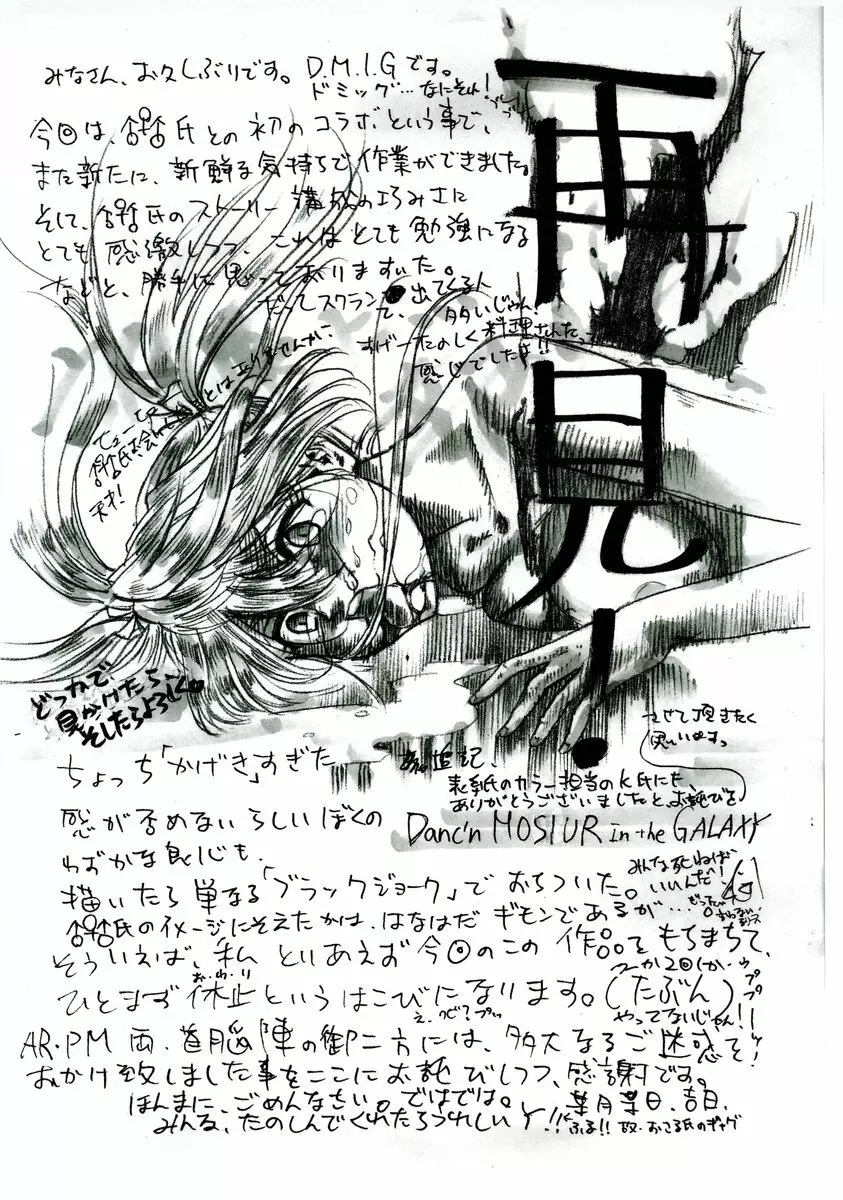 みなさん、お久しぶりです。D.M.I.Gです。
ドミッグ…なにそれ!
今回は、氏との初のコラボという事で、
また新たに、新鮮な気持ちで作業ができました。
そして、氏のストーリー構成の巧みさに
とても感激しつつ、これはとても勉強になる
などと、勝手に思っておりますいた。
だってスクラン 出てくる人
て、多いじゃん!
すげーたのしく料理されたっ
感じでしたは!!
再見!
天才!
どっかで
見かけたら、
そしたらよろしく。
ちょっち「かげき」すぎた
感が否めないらしいぼくの
わずかな良心も、
描いたら単なる「ブラックジョーク」でおちついた。
氏のイメージにそえたかは、はなはだギモンであるが…
そういえば、私といあえず今回のこの作品をもちまちて、
ひとまず休止というはこびになります。(たぶん)
お・わ・り
追記、
させて頂きたく
思います。
表紙のカラー担当のK氏にも、
ありがとうございましたと、お詫びを
Danc'n MOSIUR in the GALAXY
みんな死ねば
いいんだ!
やってないじゃん!!
AR・PM両・首脳陣の御二方には、多大なるご迷惑を
おかけ致しました事をここにお詫びしつつ、感謝です。
ほんまに、ごめんなさい。ではでは。
葉月某日、吉日、
みんな、たのしんでくれたらうれしい